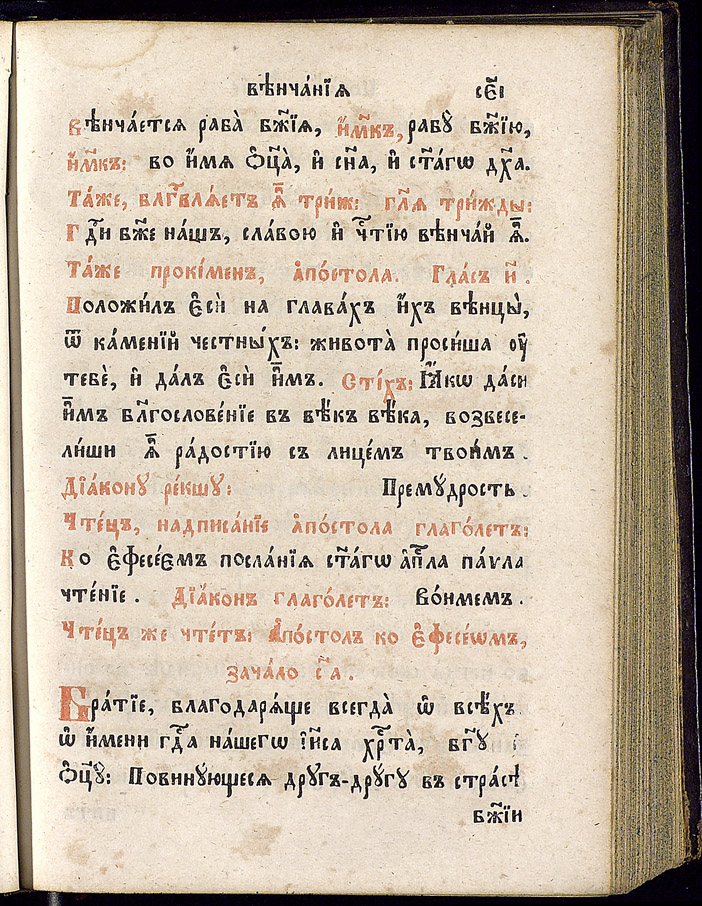 вѣнча́нїѧ сє҃і
вѣнча́етсѧ раба̀ бж҃їѧ, и҆́м҃къ, рабꙋ̀ бж҃їю,
и҆́м҃къ: во и҆́мѧ ѻ҆ц҃а̀, и҆ сн҃а, и҆ ст҃а́гѡ дх҃а.
Та́же, бл҃гвлѧ́етъ ѧ҆̀ три́ж: гл҃ѧ три́жды:
Гдⷭ҇и бж҃е на́шъ, сла́вою и҆ че́стїю вѣнча́й ѧ҆̀.
Та́же проки́менъ, а҆по́стола. Гла́съ и҃.
Положи́лъ є҆сѝ на глава́хъ и҆́хъ вѣнцы̀,
ѿ ка́менїй честны́хъ: живота̀ проси́ша ᲂу҆
тебє̀, и҆ да́лъ є҆сѝ и҆̀мъ. Сті́хъ: Ꙗ҆́кѡ да́си
и҆̀мъ бл҃гослове́нїе въ вѣ́къ вѣ́ка, возвесе-
ли́ши ѧ҆̀ ра́достїю съ лице́мъ твои́мъ.
Дїа́конꙋ ре́кшꙋ: Премꙋ́дрость.
Чте́цъ, надписа́нїе а҆по́стола глаго́летъ:
Ко є҆фесе́ємъ посла́нїѧ ст҃а́гѡ а҆п҃ла па́ѵла
чте́нїе. Дїа́конъ глаго́летъ: Во́нмемъ.
Чте́цъ же чте́тъ: А҆по́столъ ко є҆фесе́ѡмъ,
зача́ло с҃л҃а.
Бра́тїе, благодарѧ́ще всегда̀ ѡ҆ всѣ́хъ
ѡ҆ и҆́мени гдⷭ҇а на́шегѡ і҆и҃са хрⷭ҇та̀, бг҃ꙋ и҆
ѻ҆ц҃ꙋ̀: Повинꙋ́ющесѧ дрꙋ́гъ-дрꙋ́гꙋ въ стра́сѣ
бж҃їи